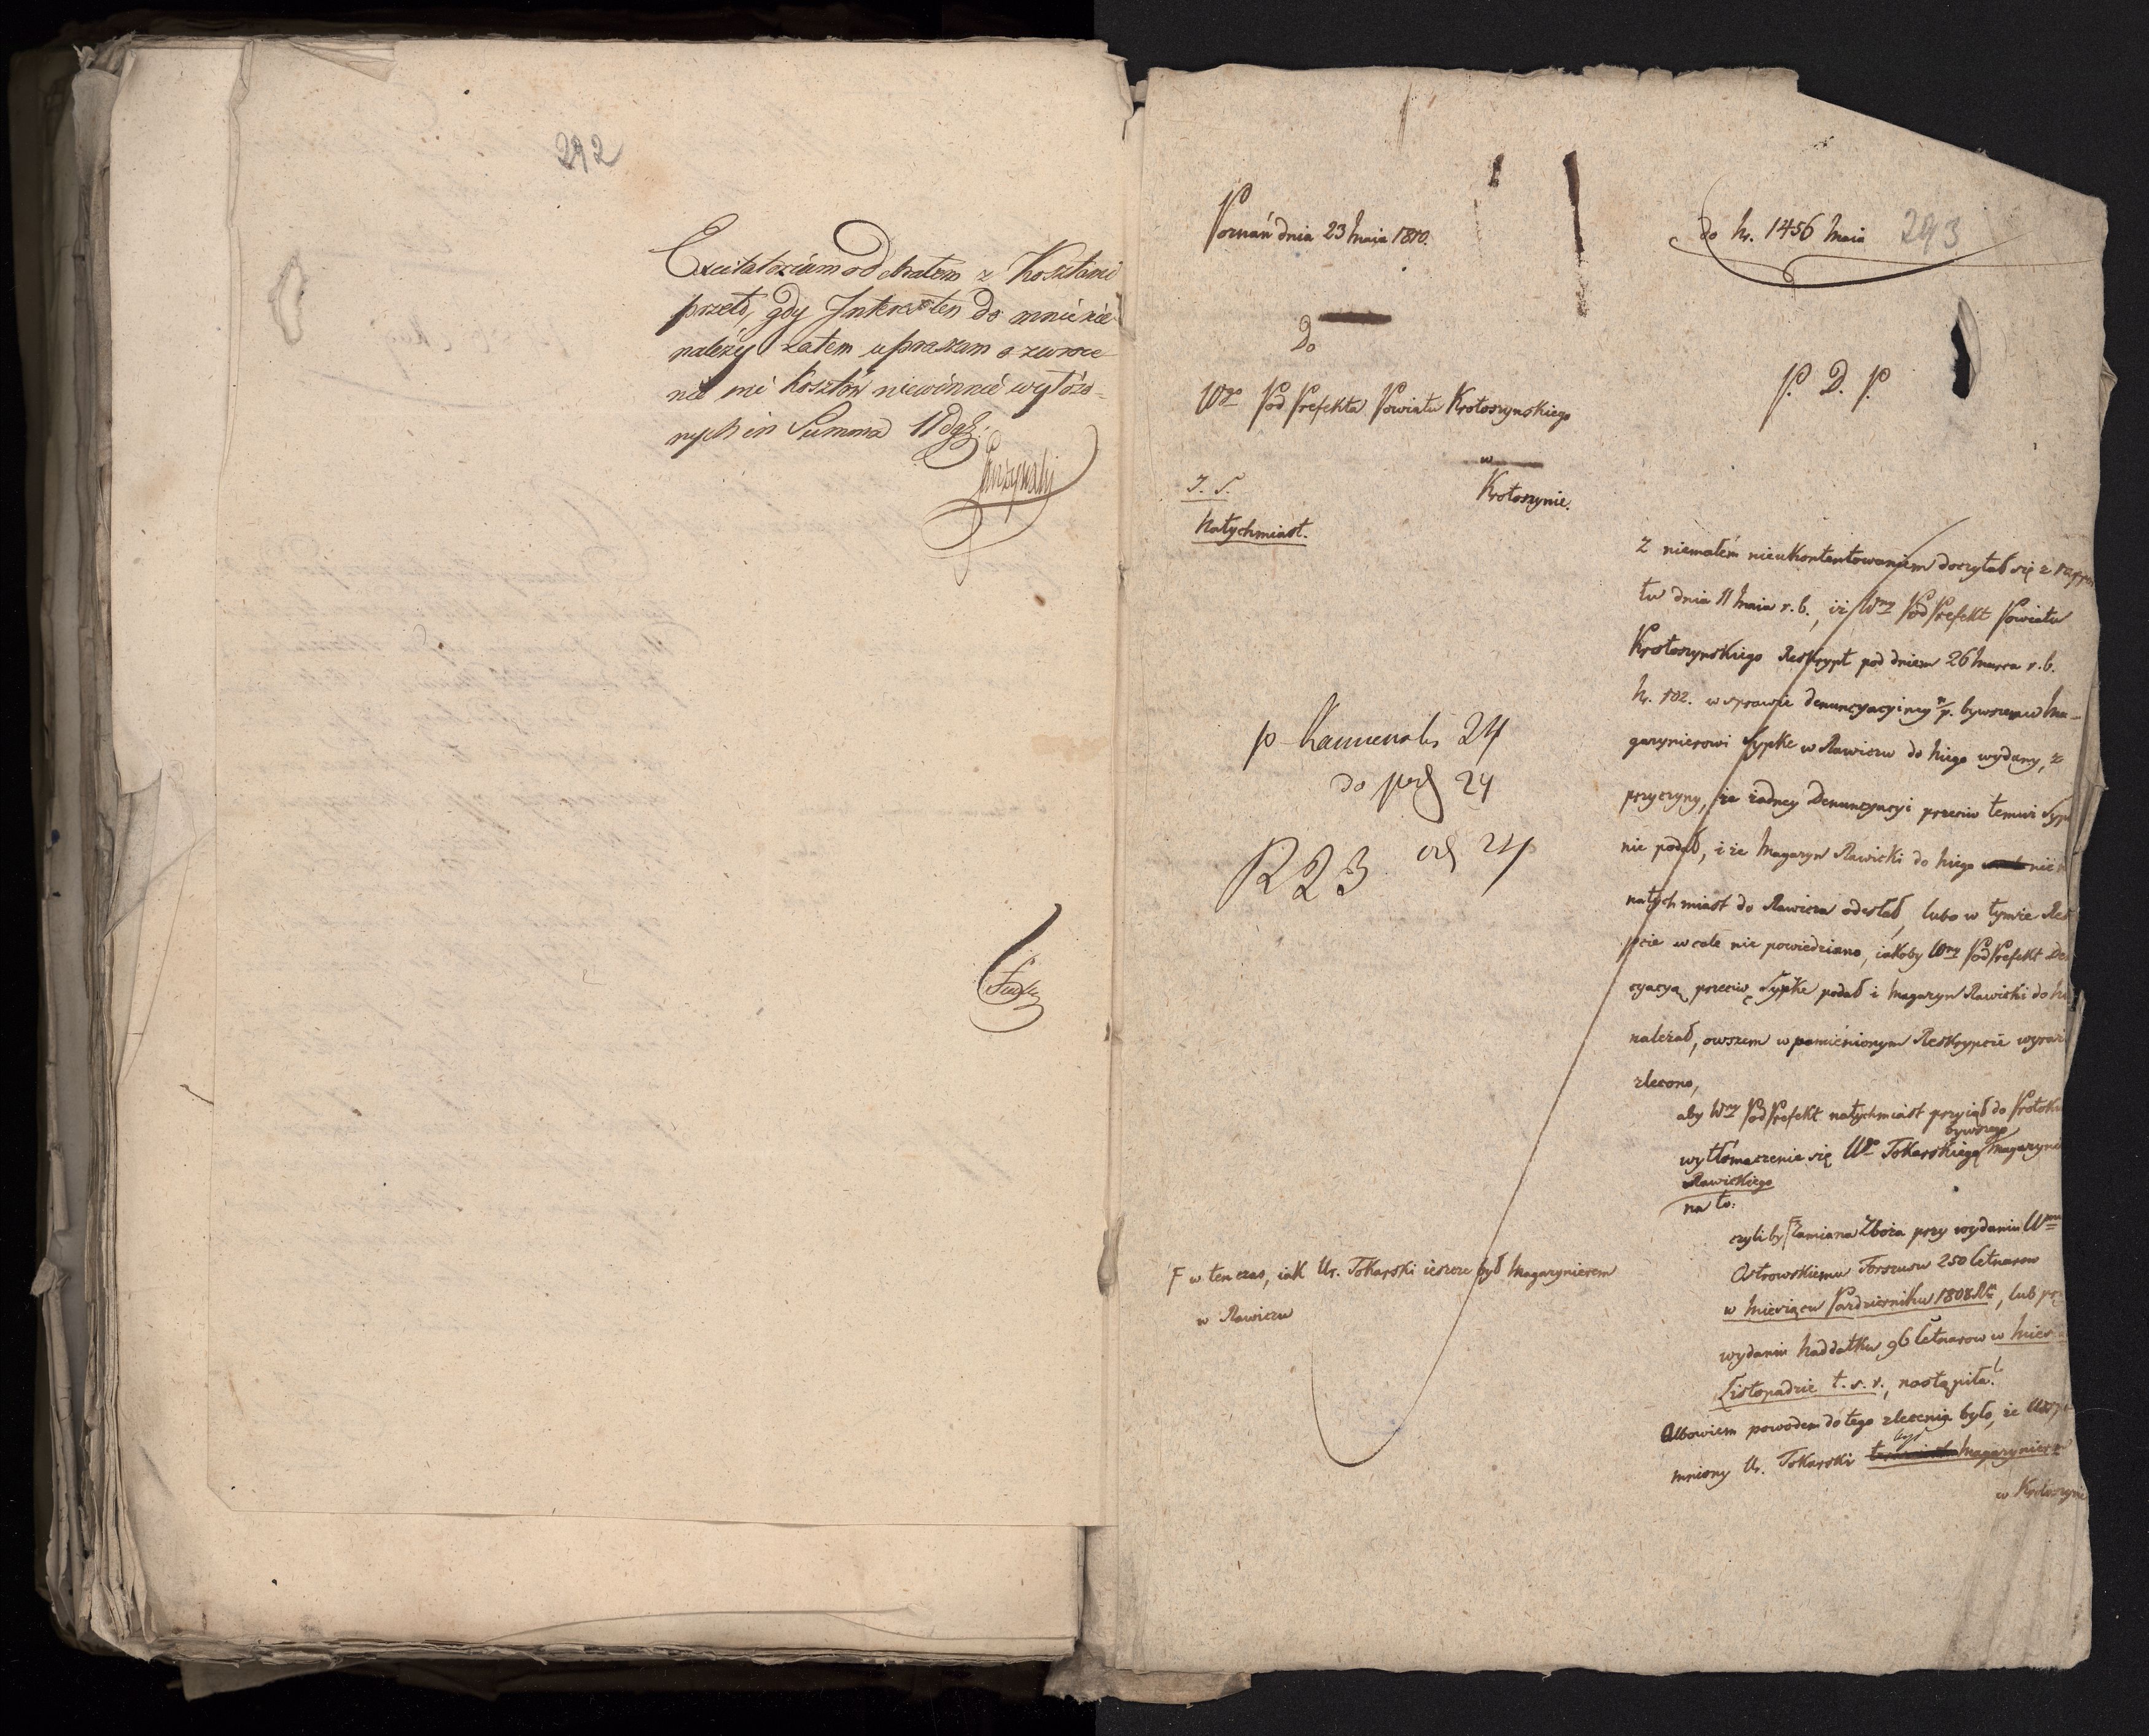 292
Excitatorium odebrałem z Kosztami
przeto, gdy Interes ten do mnie nie
należy zatem upraszam o zwróce
nie mi kosztów niewinnie wyłożo-
nych in Summa 11 dgl.
293
do Nr. 1456 Maia
Poznań dnia 23 Maja 1810.
Do
Wgo PodPrefekta Powiatu Krotoszynskiego
w
Krotoszynie.
J. S.
Natychmiast.
P. D. P.
p 24
do 24
R 23 24
F w ten czas, iak Ur. Tokarski ieszcze był Magazynierem
w Rawiczu
Z niemałém nieukontentowaniem doczytał się z rappor
tu dnia 11 Maia r. b., iż Wny PodPrefekt Powiatu
Krotoszynskiego Reskrypt pod dniem 26 Marca r. b.
Nr. 102. w sprawie denuncyacyiney p. bywszemu Ma-
gazynierowi Sypke w Rawiczu do Niego wydany, z
przyczyny, że żadney Denuncyacyi przeciw temuż Syp
nie podał, i że Magazyn Rawicki do Niego nie
natychmiast do Rawicza odesłał, lubo w tymże Res
pcie wcale nie powiedziano, iakoby Wny PodPrefekt De
cyacyą przeciw Sypke podał i Magazyn Rawicki do Ni
należał, owszem w pomienionym Reskrypcie wyraź
zlecono,
aby Wny PodPrefekt natychmiast przyiął do Protoku
bywszego
wytłomaczenie się Wgo Tokarskiego Magazynie
Rawickiego
na to:
czyliby F zamiana Zboża przy wydaniu Wmu
Ostrowskiemu Forszusu 250 Cetnarow
w Miesiącu Pazdzierniku 1808, lub prz
wydaniu Naddatku 96 Cetnarow w Mies
Listopadzie t. s. r., nastąpiła?
Albowiem powodem do tego zlecenia było, że Wsp
był
mniony Ur. Tokarski Magazynierem
w Krotoszynie